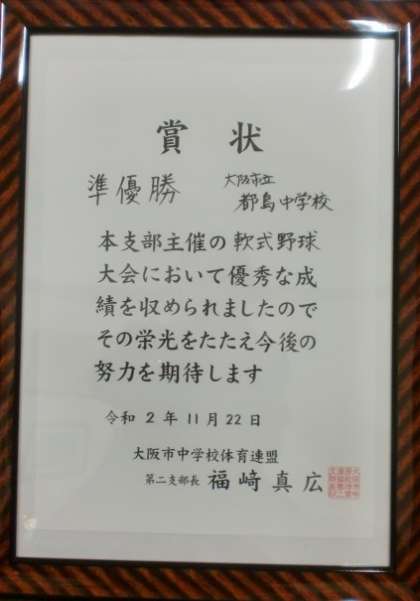 賞状
準優勝 大阪市立
都島中学校
本支部主催の軟式野球
大会において優秀な成
績を収められましたので
その栄光をたたえ今後の
努力を期待します
令和2年11月22日
大阪市中学校体育連盟
第二支部長 福﨑真広